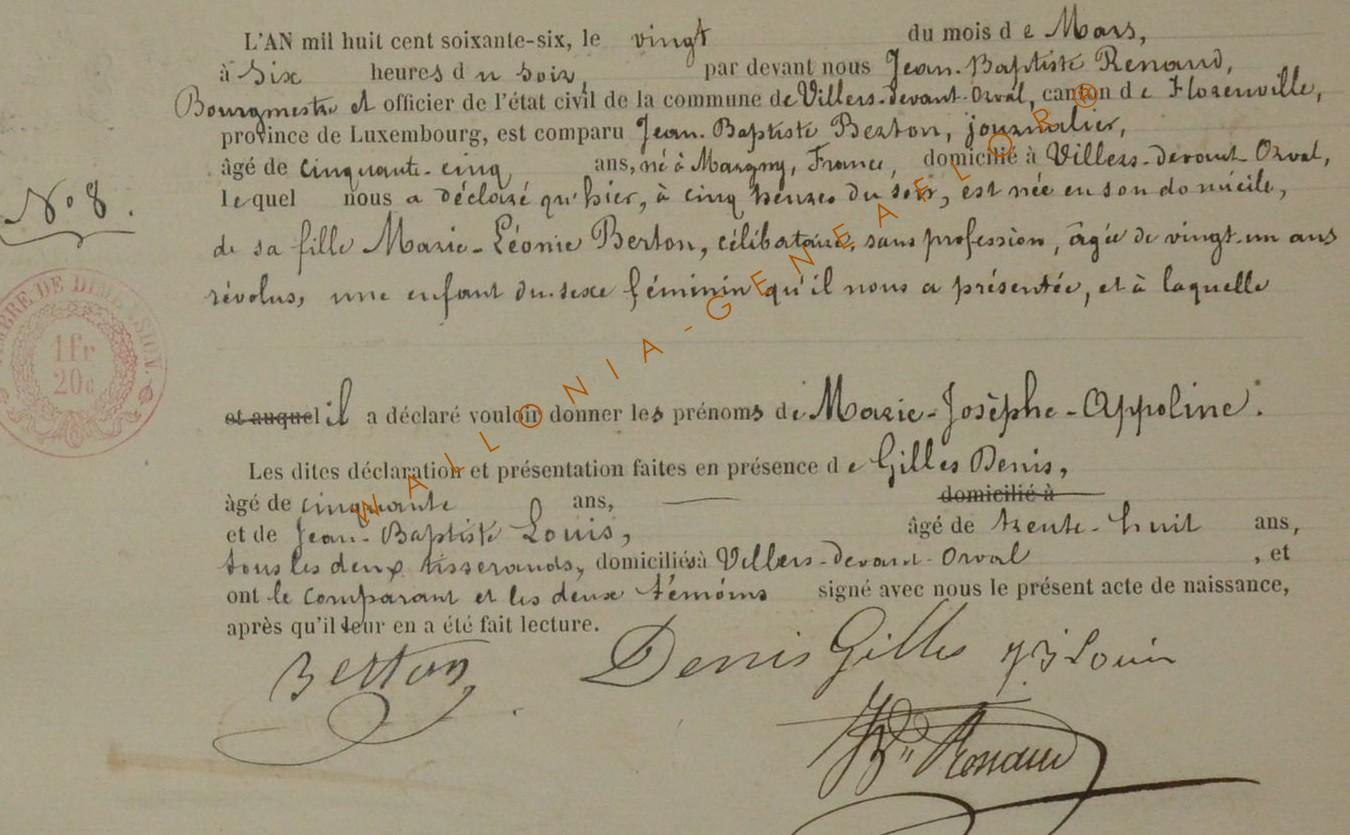 L'AN mil huit cent soixante-six, le vingt du mois de Mars,
à Six heures du soir, par devant nous Jean-Baptiste Renaud,
Bourgmestre et officier de l'état civil de la commune de Villers-devant-Orval, canton de Florenville,
province de Luxembourg, est comparu Jean-Baptiste Berton, journalier,
âgé de cinquante-cinq ans, né à Margny, France, domicilié à Villers-devant Orval,
lequel nous a déclaré qu'hier, à cinq heures du soir, est née en son domicile,
N° 8.
de sa fille Marie-Léonie Berton, célibataire, sans profession, âgée de vingt-un ans
révolus, une enfant du sexe féminin qu'il nous a présentée, et à laquelle
TIMBRE DE DIMENSION.
1fr
20c
et auquel il a déclaré vouloir donner les prénoms de Marie-Josèphe-Appoline.
Les dites déclaration et présentation faites en présence de Gilles Denis,
âgé de cinquante ans, domicilié à
et de Jean-Baptiste Louis, âgé de trente-huit ans,
tous les deux tisserands, domiciliés à Villers-devant-Orval, et
ont le comparant et les deux témoins signé avec nous le présent acte de naissance,
après qu'il leur en a été fait lecture.
Berton Denis Gilles J B Louis
JBte Renaud
WALLONIA-GENEALOR®